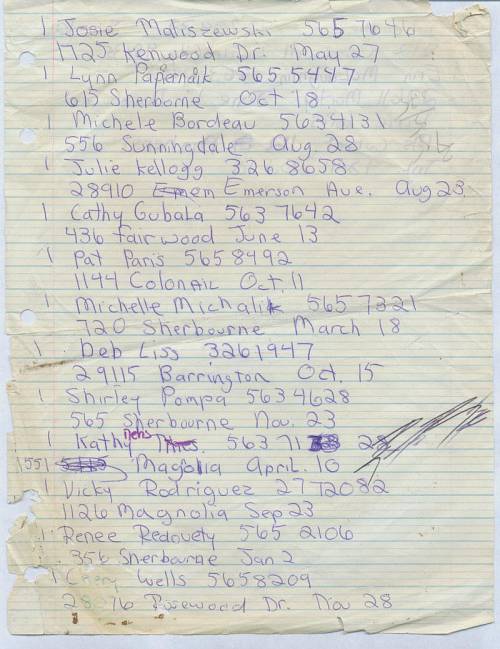 1 Josie Maliszewski 565 7646
1725 Kenwood Dr. May 27
1 Lynn Papernak 565 5447
615 Sherborne Oct 18
1 Michele Bordeau 5634131
556 Sunningdale Aug 28
1 Julie Kellogg 326 8658
28910 Emerson Ave. Aug 23
1 Cathy Gubala 563 7642
436 Fairwood June 13
1 Pat Paris 565 8492
1144 Colonail Oct. 11
1 Michelle Michalik 565 7321
720 Sherbourne March 18
1 Deb Liss 3261947
29115 Barrington Oct. 15
1 Shirley Pompa 563 4628
565 Sherbourne Nov. 23
1 Kathy 563 71 28
551 April. 10
1 Vicky Rodriguez 27 72082
1126 Magnolia Sep 23
1 Renee 565 2106
356 Sherbourne Jan 2
1 Wells 5658209
Rosewood Dr. Nov 28